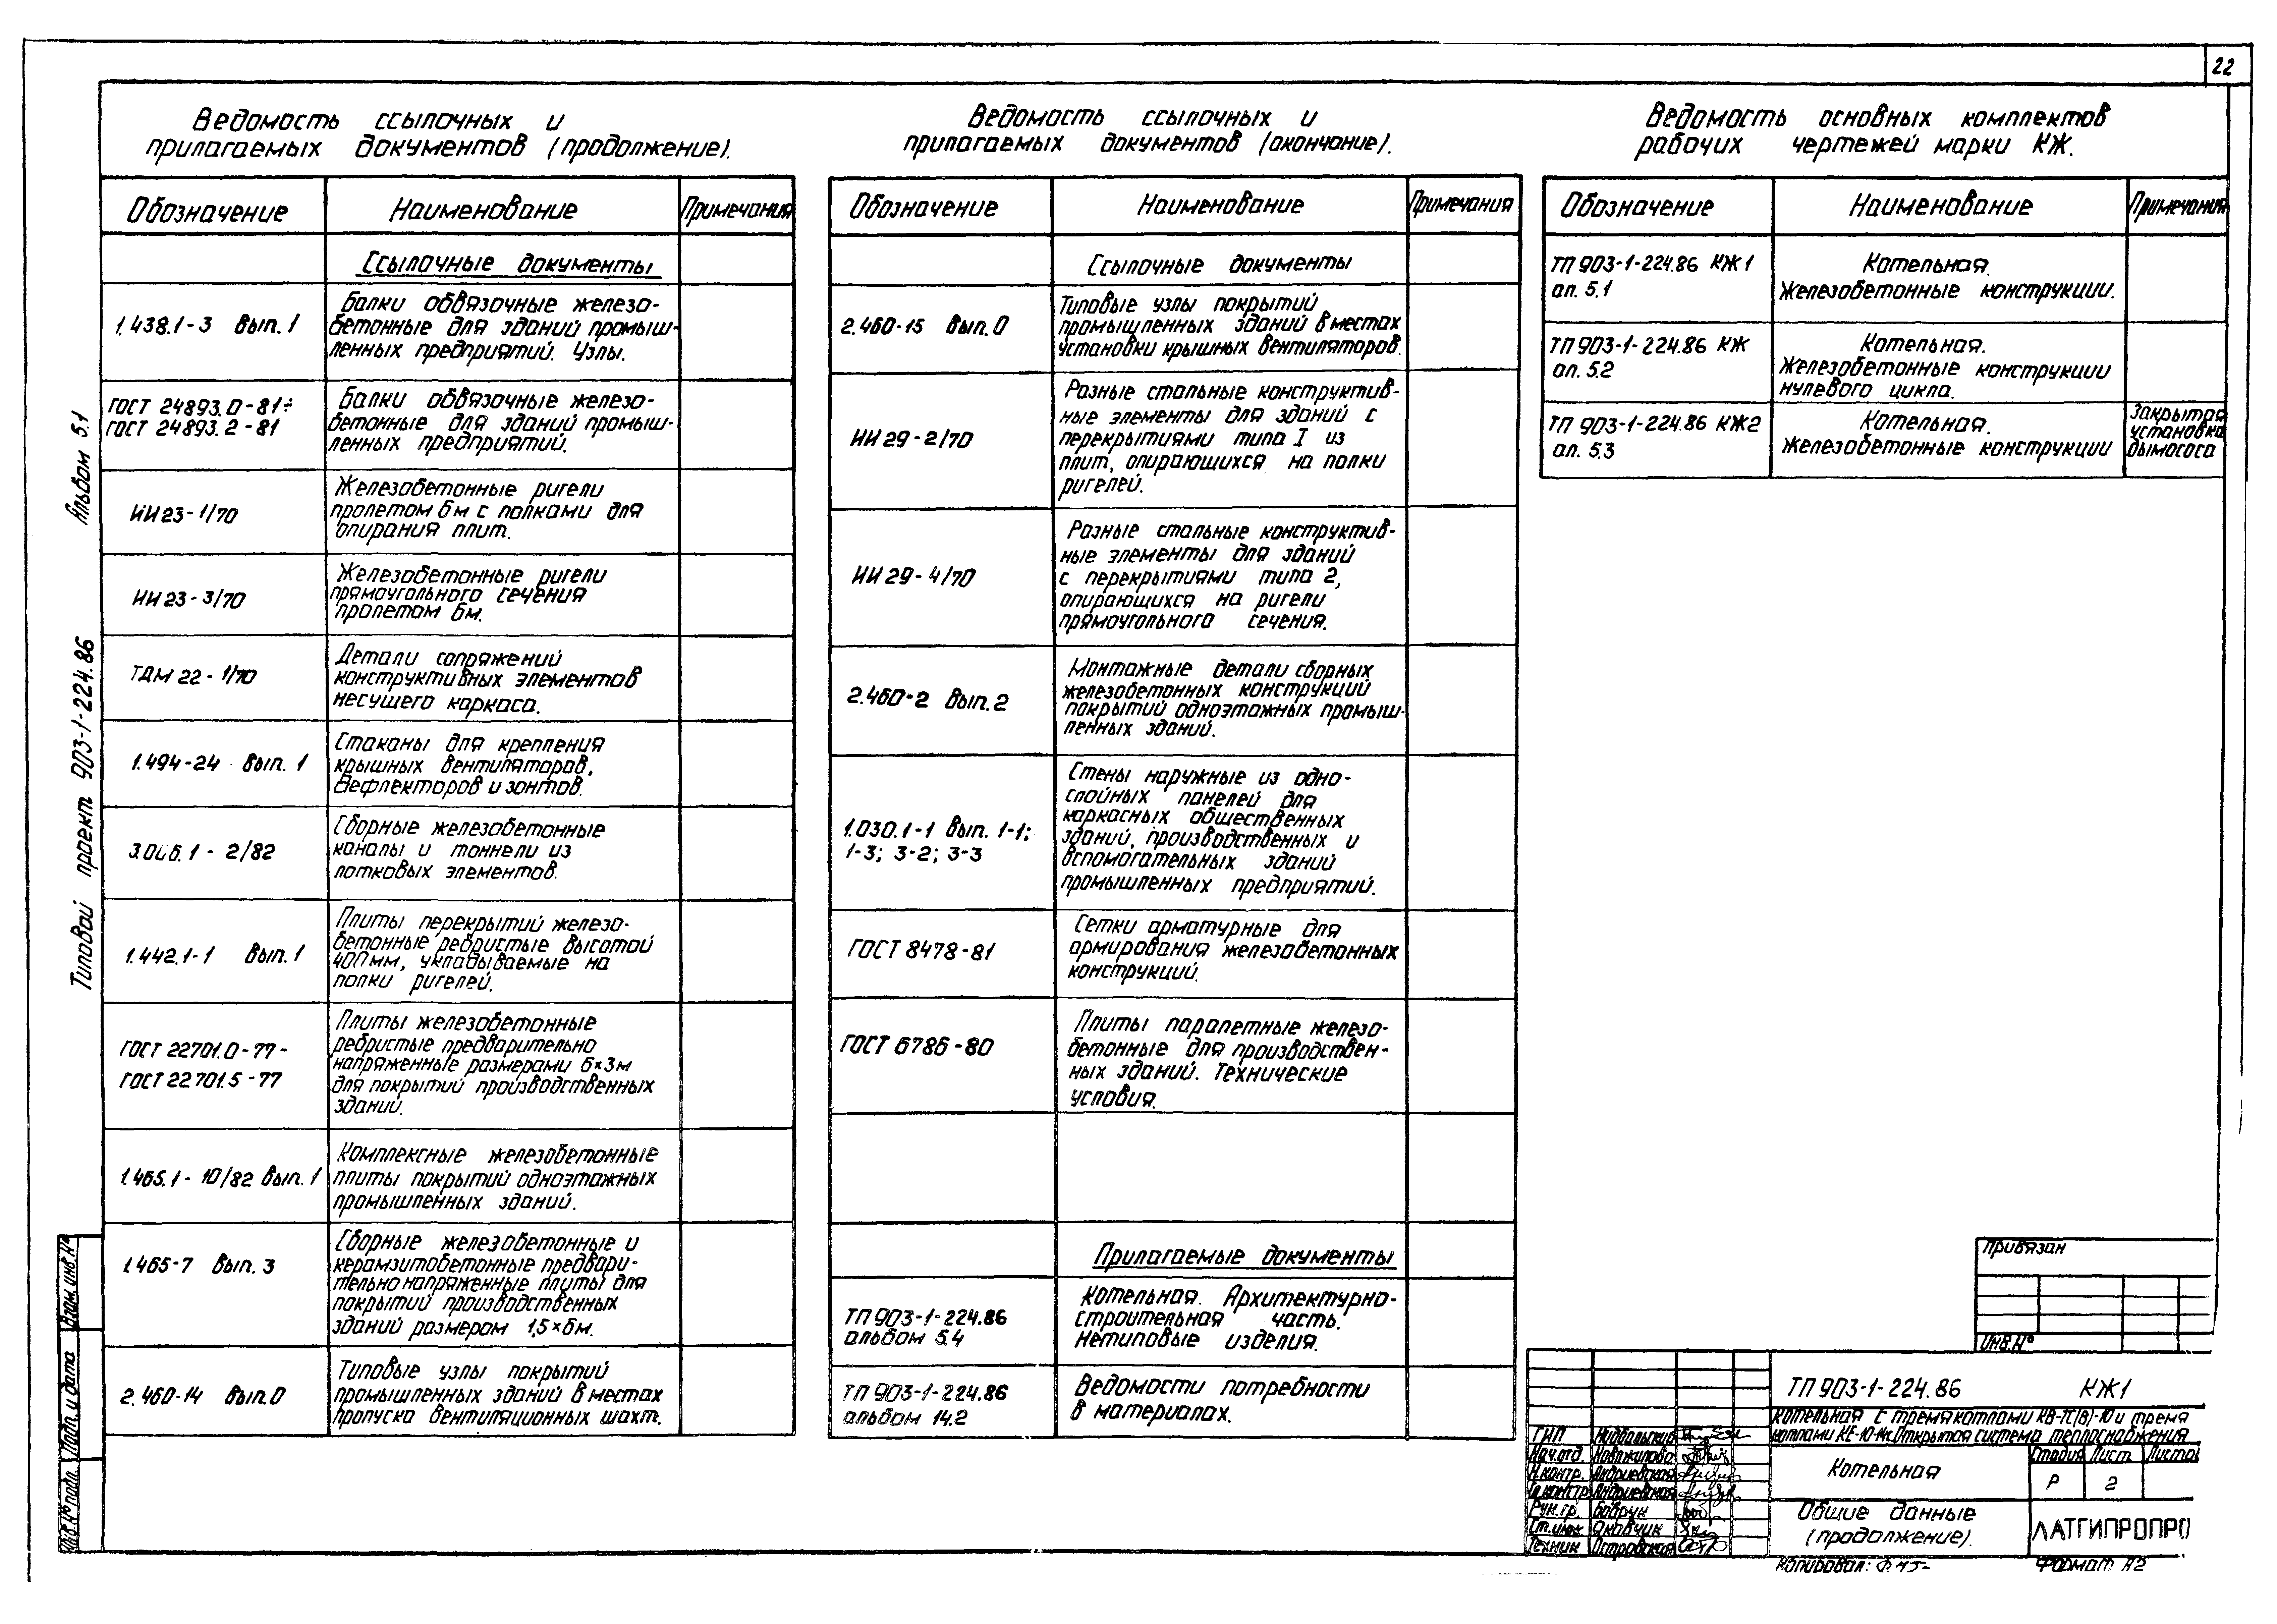 22
Ведомость ссылочных и
прилагаемых документов (продолжение).
Обозначение Наименование Примечания
Ссылочные документы
1.438.1-3 Вып. 1
Балки обвязочные железо-
бетонные для зданий промыш-
ленных предприятий. Узлы.
ГОСТ 24893.0-81÷
ГОСТ 24893.2-81
Балки обвязочные железо-
бетонные для зданий промыш-
ленных предприятий.
ИИ23-1/70
Железобетонные ригели
пролетом 6м с полками для
опирания плит.
ИИ23-3/70
Железобетонные ригели
прямоугольного сечения
пролетом 6м.
ТДМ 22-1/70
Детали сопряжений
конструктивных элементов
несущего каркаса.
1.494-24 Вып. 1
Стаканы для крепления
крышных вентиляторов,
дефлекторов и зонтов.
2/82
Сборные железобетонные
каналы и тоннели из
лотковых элементов.
1.442.1-1 Вып. 1
Плиты перекрытий железо-
бетонные ребристые высотой
400мм, укладываемые на
полки ригелей.
ГОСТ 22701.0-77-
ГОСТ 22701.5-77
Плиты железобетонные
ребристые предварительно
напряженные размерами 6×3м
для покрытий производственных
зданий.
1.465.1-10/82 Вып. 1
Комплексные железобетонные
плиты покрытий одноэтажных
промышленных зданий.
1.465-7 Вып. 3
Сборные железобетонные и
керамзитобетонные предвари-
тельно напряженные плиты для
покрытий производственных
зданий размером 1,5×6м.
2.460-14 Вып.0
Типовые узлы покрытий
промышленных зданий в местах
пропуска вентиляционных шахт.
Ведомость ссылочных и
прилагаемых документов (окончание).
Обозначение Наименование Примечания
Ссылочные документы
2.460-15 Вып.0
Типовые узлы покрытий
промышленных зданий в местах
установки крышных вентиляторов.
ИИ 29-2/70
Разные стальные конструктив-
ные элементы для зданий с
перекрытиями типа I из
плит, опирающихся на полки
ригелей.
ИИ 29-4/70
Разные стальные конструктив-
ные элементы для зданий
с перекрытиями типа 2,
опирающихся на ригели
прямоугольного сечения.
2.460-2 Вып. 2
Монтажные детали сборных
железобетонных конструкций
покрытий одноэтажных промыш-
ленных зданий.
1.030.1-1 Вып. 1-1;
1-3; 3-2; 3-3
Стены наружные из одно-
слойных панелей для
каркасных общественных
зданий, производственных и
вспомогательных зданий
промышленных предприятий.
ГОСТ 8478-81
Сетки арматурные для
армирования железобетонных
конструкций.
ГОСТ 6786-80
Плиты парапетные железо-
бетонные для производствен-
ных зданий. Технические
условия.
Прилагаемые документы
ТП 903-1-224.86
альбом 5.4
Котельная. Архитектурно-
строительная часть.
Нетиповые изделия.
ТП 903-1-224.86
альбом 14.2
Ведомости потребности
в материалах.
Ведомость основных комплектов
рабочих чертежей марки КЖ.
Обозначение Наименование Примечания
ТП 903-1-224.86 КЖ1
ал. 5.1
Котельная.
Железобетонные конструкции.
ТП 903-1-224.86 КЖ
ал. 5.2
Котельная.
Железобетонные конструкции
нулевого цикла.
ТП 903-1-224.86 КЖ2
ал. 5.3
Котельная.
Железобетонные конструкции
Закрытая
установка
дымососа
Типовой проект 903-1-224.86 Альбом 5.1
Взам. инв. №
Подп. и дата
Инв. № подл.
Привязан
Инв. №
ТП 903-1-224.86 КЖ1
Котельная с тремя котлами КВ-ТС(В)-10 и тремя
котлами КЕ-10-14с. Открытая система теплоснабжения
ГИП
Нач.отд.
Н.контр. Андриевская
Гл.констр. Андриевская
Рук.гр. Бобрук
Ст.инж.
Техник Островская
Котельная
Стадия Лист Листов
Р 2
Общие данные
(продолжение).
ЛАТГИПРОПРО
Копировал:
Формат А2